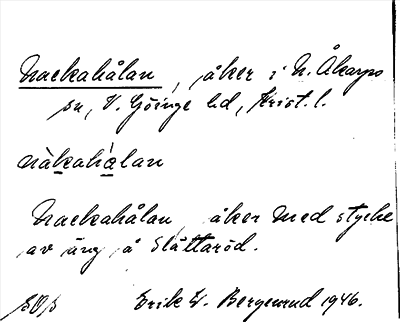 Nackahålan, åker i N. Åkarps
sn, V. Göinge hd, Krist. l.
nàkahálan
Nackahålan, åker med stycke
av äng på Slättaröd.
Erik W. Bergenrud 1946.